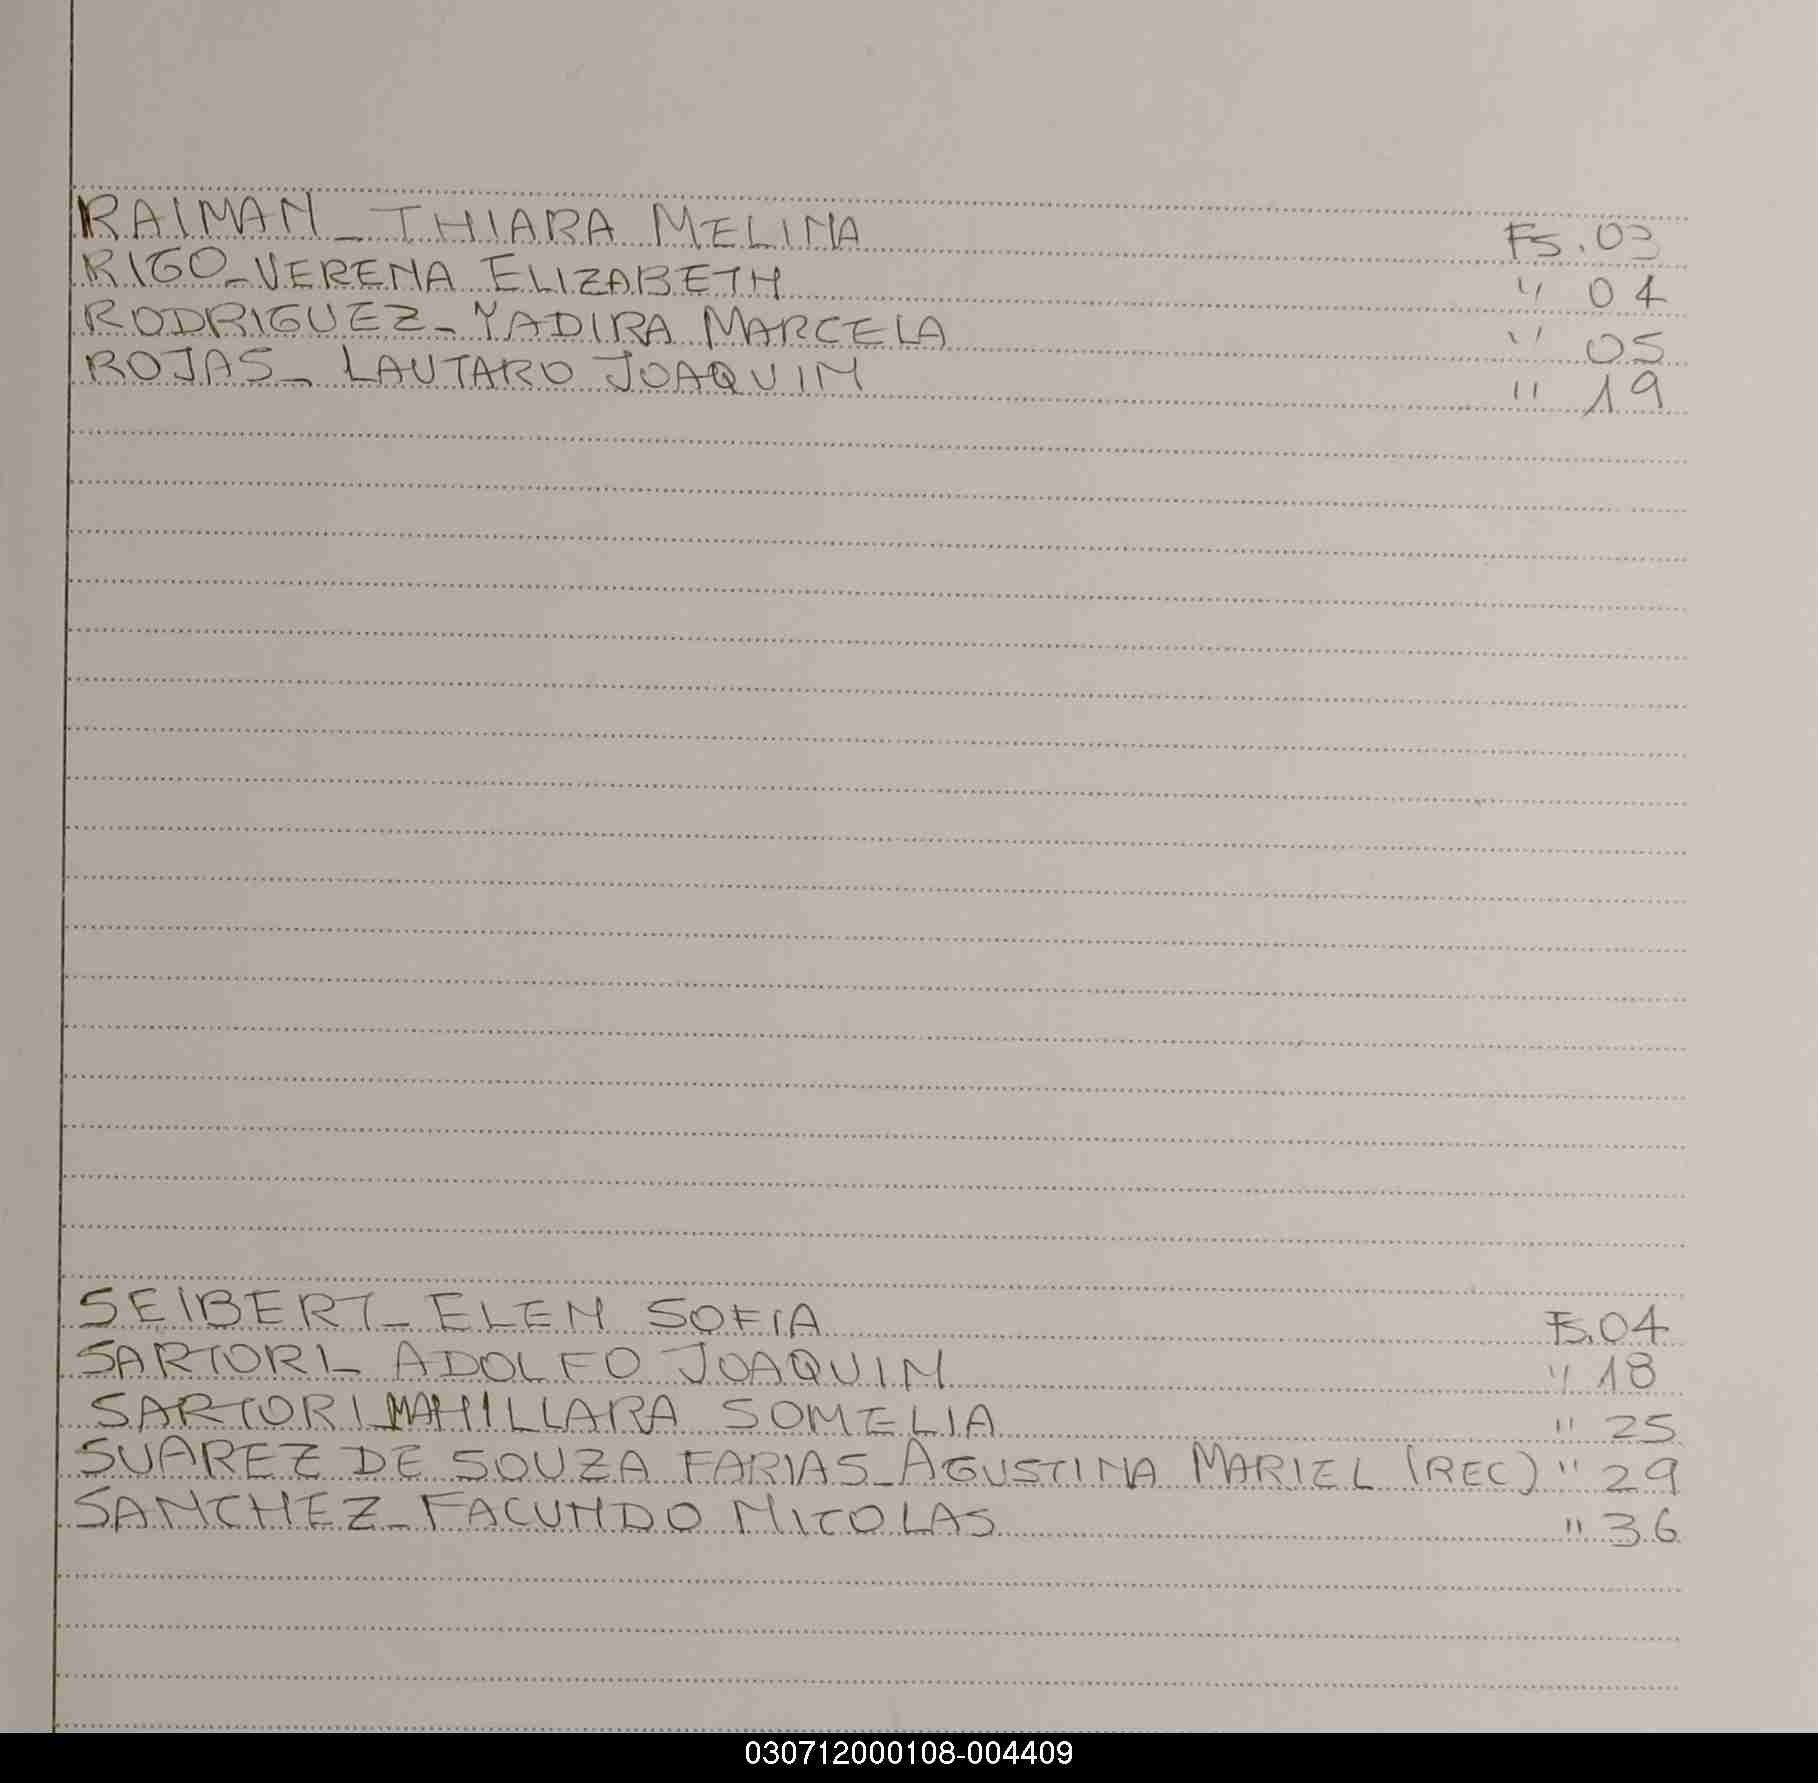 RAIMAN_ THIARA MELINA Fs.03
RIGO_VERENA ELIZABETH " 04
RODRIGUEZ_YADIRA MARCELA " 05
ROJAS_ LAUTARO JOAQUIN " 19
SEIBERT_ ELEN SOFIA Fs.04
SARTORI_ ADOLFO JOAQUIN " 18
SARTORI_ SOMELIA " 25
SUAREZ DE SOUZA FARIAS_AGUSTINA MARIEL (REC) " 29
SANCHEZ_FACUNDO NICOLAS " 36
030712000108-004409